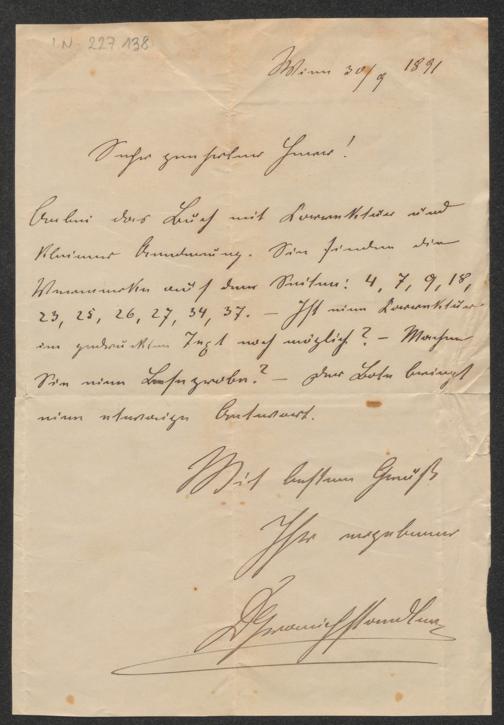 I. N. 227.138
Wien 30/9 1891
Sehr geehrter Herr!
Anbei das Buch mit Correktur und
kleiner Aenderung. Sie finden die
Vermerke auf den Seiten: 4, 7, 9, 18,
23, 25, 26, 27, 34, 37. – Ist eine Correktur
im gedruckten Text noch möglich? – Machen
Sie eine Leseprobe? – Der Bote bringt
eine etwaige Antwort.
Mit bestem Gruß
Ihr ergebener